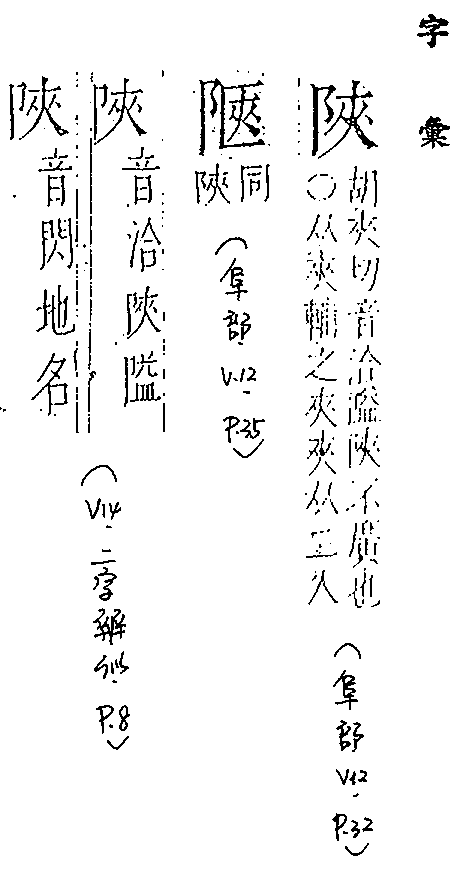 字彙
陜
胡夾切音洽隘陜不廣也
○从夾輔之夾夾从二人
(阜部 V.12. P.32)
同
陜
(阜部 V.12. P.35)
陜音洽陜隘
陝音閃地名
(V14. 二字辨似 P.8)